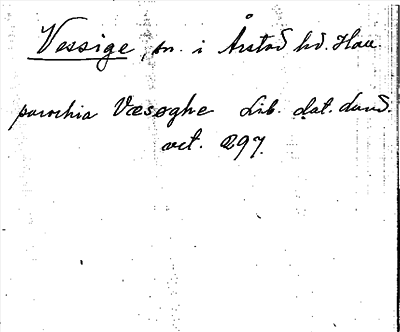 Vessige, sn. i Årstad hd. Hall.
parochia Væsøghe Lib. dat. lund.
oct. 297.